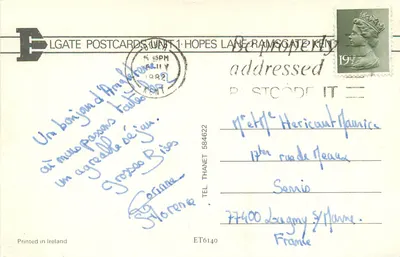 ELGATE POSTCARDS UNIT 1 · HOPES LANE RAMSGATE KENT
Be properly
addressed
POSTCODE IT
5 PM
1982
KENT
19½P
Un bonjour d'Angleterre
où nous passons toutes
un agréable séjour.
Grosses Bises
Corinne
Florence
TEL THANET 584622
Mr et Me Hericourt Maurice
17 ter rue de Meaux
77400 Lagny s/ Marne.
France
Printed in Ireland
ET6140